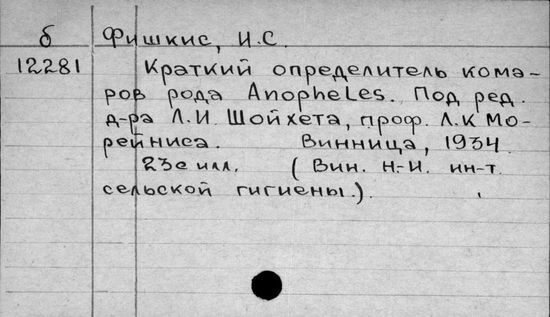 б Фишкис, И.С.
12281 Краткий определитель кома-
ров рода Anopheles. Под ред.
д-ра Л.И. Шойхета, проф. Л.К Мо-
рейниса. Винница, 1934
23с илл. (Вин. Н-И. ин-т.
сельской гигиены.).